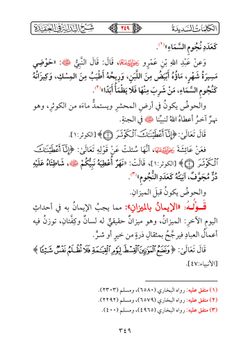 الكلمات السديدة ٣٤٩ شرح البداية في العقيدة
كعدد نُجوم السَّماءِ»(١).
وعنْ عبْدِ اللهِ بْنِ عَمْرٍو رَضِيَ اللَّهُ عَنْهُمَا، قَالَ: قَالَ النَّبِيُّ ﷺ: «حَوْضِي
مَسِيرَةُ شَهْرٍ، مَاؤُهُ أَبْيَضُ مِنَ اللَّبَنِ، وَرِيحُهُ أَطْيَبُ مِنَ المِسْكِ، وَكِيزَانُهُ
كَنُجُومِ السَّمَاءِ، مَنْ شَرِبَ مِنْهَا فَلَا يَظْمَأُ أَبَدًا»(٢).
والحوضُ يكونُ في أرضِ المحشرِ ويستمدُّ ماءَه من الكوثرِ، وهو
نهرٌ آخرُ أعطاهُ اللهُ لنبيِّنا ﷺ في الجنةِ.
قَالَ تَعَالَى: ﴿إِنَّآ أَعْطَيْنَٰكَ ٱلْكَوْثَرَ ١﴾ [الكوثر:١].
فعنْ عَائِشَةَ رَضِيَ اللَّهُ عَنْهَا، أنَّها سُئلتْ عنْ قَوْلِهِ تَعَالَى: ﴿إِنَّآ أَعْطَيْنَٰكَ
ٱلْكَوْثَرَ ١﴾ [الكوثر:١]، قَالَتْ: «نَهَرٌ أُعْطِيَهُ نَبِيُّكُمْ ﷺ، شَاطِئَاهُ عَلَيْهِ
دُرٌّ مُجَوَّفٌ، آنِيَتُهُ كَعَدَدِ النُّجُومِ»(٣).
والحوضُ يكونُ قبلَ الميزانِ.
قَوْلُهُ: «الإِيمانُ بالميزانِ»: مما يجبُ الإيمانُ به في أحداثِ
اليومِ الآخرِ: الميزانُ، وهو ميزانٌ حقيقيٌّ له لسانٌ وكِفَّتانِ، توزنُ فيه
أعمالُ العبادِ فيرجُحُ بمثقالِ ذرةٍ من خيرٍ أو شرٍّ.
قَالَ تَعَالَى: ﴿وَنَضَعُ ٱلْمَوَٰزِينَ ٱلْقِسْطَ لِيَوْمِ ٱلْقِيَٰمَةِ فَلَا تُظْلَمُ نَفْسٌ شَيْـًٔا﴾
[الأنبياء:٤٧].
(١) متفق عليه: رواه البخاري (٦٥٨٠)، ومسلم (٢٣٠٣).
(٢) متفق عليه: رواه البخاري (٦٥٧٩)، ومسلم (٢٢٩٢).
(٣) متفق عليه: رواه البخاري (٤٩٦٥)، ومسلم (٤٠٠).
٣٤٩